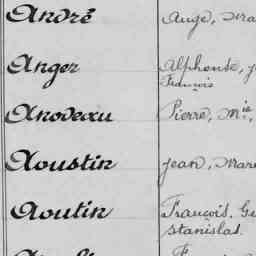 André Auge,
Anger Alphonse,
François
Anodeau Pierre, Mie,
Aoustin Jean,
Aoutin François.
Stanislas.